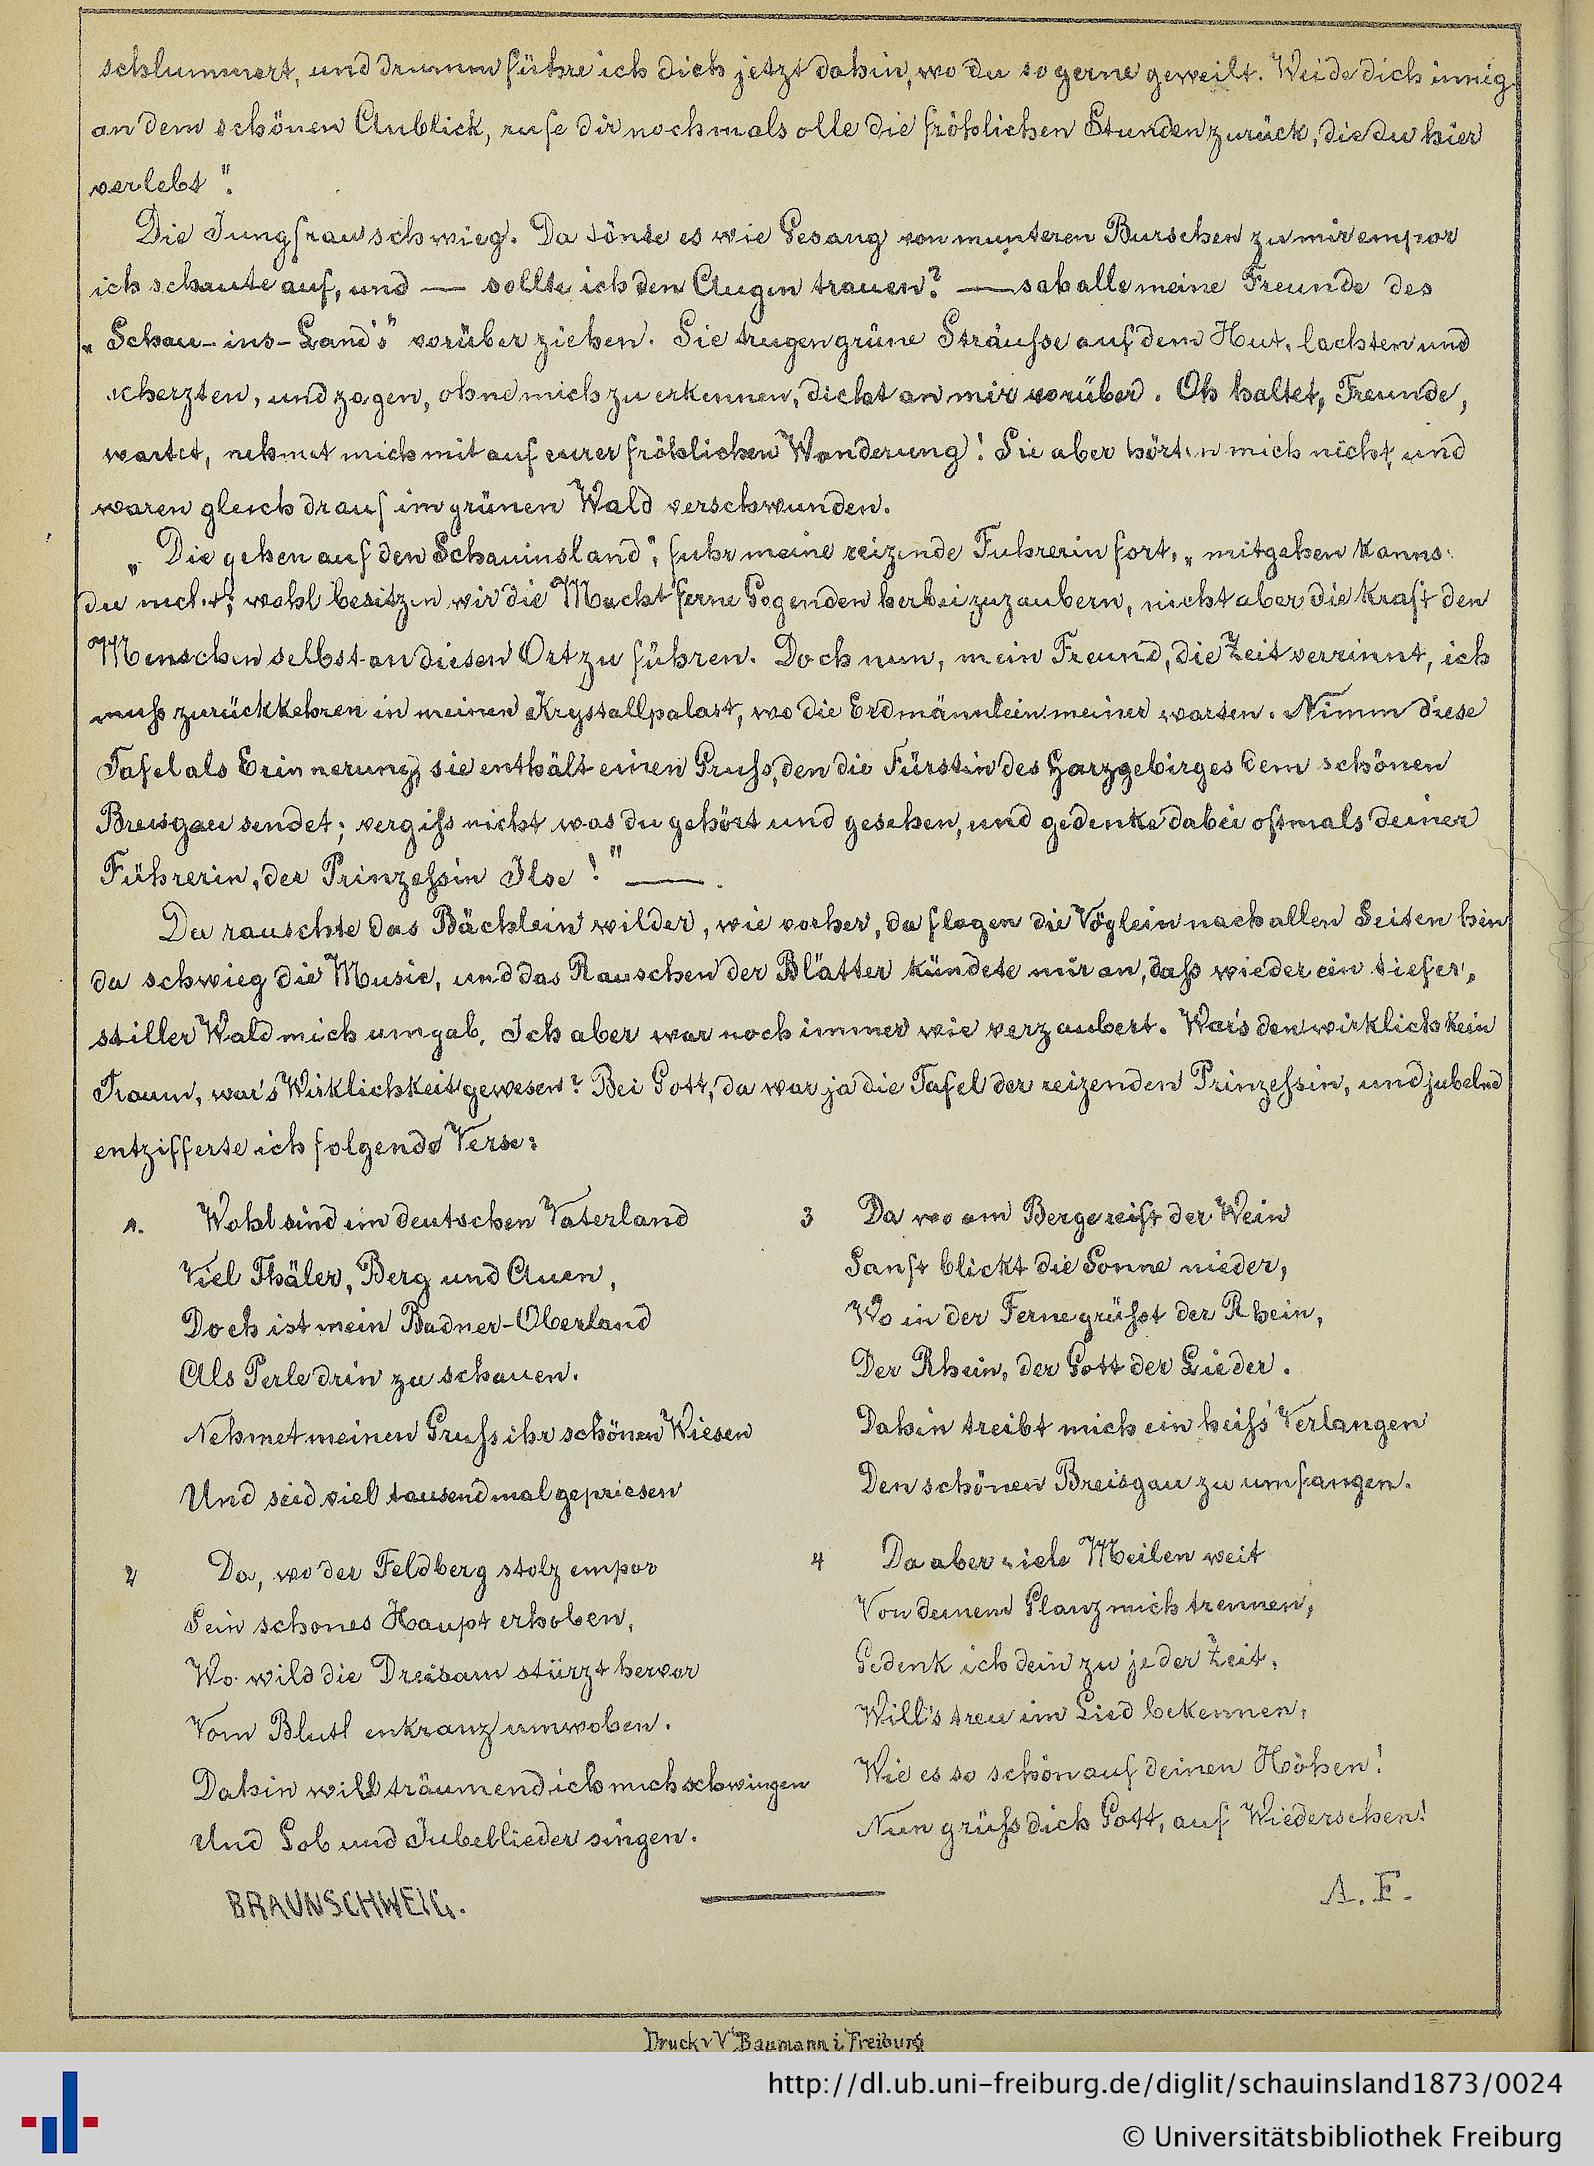 schlummert, und drumm führe ich dich jetzt dahin, wo du so gerne geweilt. Weide dich innig
an dem schönen Anblick, rufe dir nochmals alle die fröhlichen Stunden zurück, die du hier
verlebt".
Die Jungfrau schwieg. Da tönte es wie Gesang von munteren Burschen zu mir empor
ich schaute auf, und — sollte ich den Augen trauen? — sah alle meine Freunde des
„Schau-ins-Land's" vorüber ziehen. Sie trugen grüne Sträusse auf dem Hut, lachten und
scherzten, und zogen, ohne mich zu erkennen, dicht an mir vorüber. Oh haltet, Freunde,
wartet, nehmet mich mit auf eurer fröhlichen Wanderung! Sie aber hörten mich nicht, und
waren gleich drauf im grünen Wald verschwunden.
„Die gehen auf den Schauinsland", fuhr meine reizende Fuhrerin fort, „mitgehen kanns
du nicht; wohl besitzen wir die Macht ferne Gegenden herbeizuzaubern, nicht aber die Kraft den
Menschen selbst an diesen Ort zu führen. Doch nun, mein Freund, die Zeit verrinnt, ich
muß zurückkehren in meinen Krystallpalast, wo die Erdmännlein meiner warten. Nimm diese
Tafel als Erinnerung, sie enthält einen Gruss, den die Fürstin des Harzgebirges dem schönen
Breisgau sendet; vergiss nicht was du gehört und gesehen, und gedenke dabei oftmals deiner
Führerin, der Prinzessin Ilse!" —.
Da rauschte das Bächlein wilder, wie vorher, da flogen die Vöglein nach allen Seiten hin
da schwieg die Music, und das Rauschen der Blätter kündete mir an, daß wieder ein tiefer,
stiller Wald mich umgab. Ich aber war noch immer wie verzaubert. War's den wirklich kein
Traum, war's Wirklichkeit gewesen? Bei Gott, da war ja die Tafel der reizenden Prinzessin, und jubelnd
entzifferte ich folgende Verse:
1. Wohl sind im deutschen Vaterland
Viel Thäler, Berg und Auen,
Doch ist mein Badner-Oberland
Als Perle drin zu schauen.
Nehmet meinen Gruss ihr schönen Wiesen
Und seid viel tausendmal gepriesen
2 Da, wo der Feldberg stolz empor
Sein schones Haupt erhoben,
Wo wild die Dreisam stürzt hervor
Vom Blütenkranz umwoben.
Dahin will träumend ich mich schwingen
Und Lob und Jubellieder singen.
BRAUNSCHWEIG.
3 Da wo am Berge reift der Wein
Sanft blickt die Sonne nieder,
Wo in der Ferne grüsst der Rhein,
Der Rhein, der Gott der Lieder.
Dahin treibt mich ein heiss Verlangen
Den schönen Breisgau zu umfangen.
4 Da aber viele Meilen weit
Von deinem Glanz mich trennen,
Gedenk ich dein zu jeder Zeit,
Will's treu im Lied bekennen,
Wie es so schön auf deinen Höhen!
Nun grüss dich Gott, auf Wiedersehen!
A. F.
Druck v V Baumann i. Freiburg
http://dl.ub.uni-freiburg.de/diglit/schauinsland1873/0024
© Universitätsbibliothek Freiburg